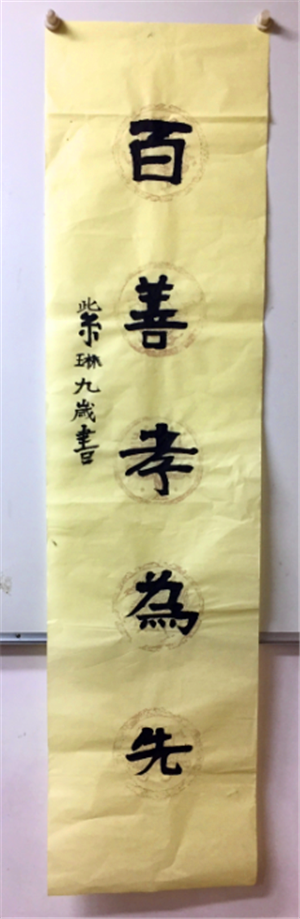 百善孝為先
紫琳九歲書